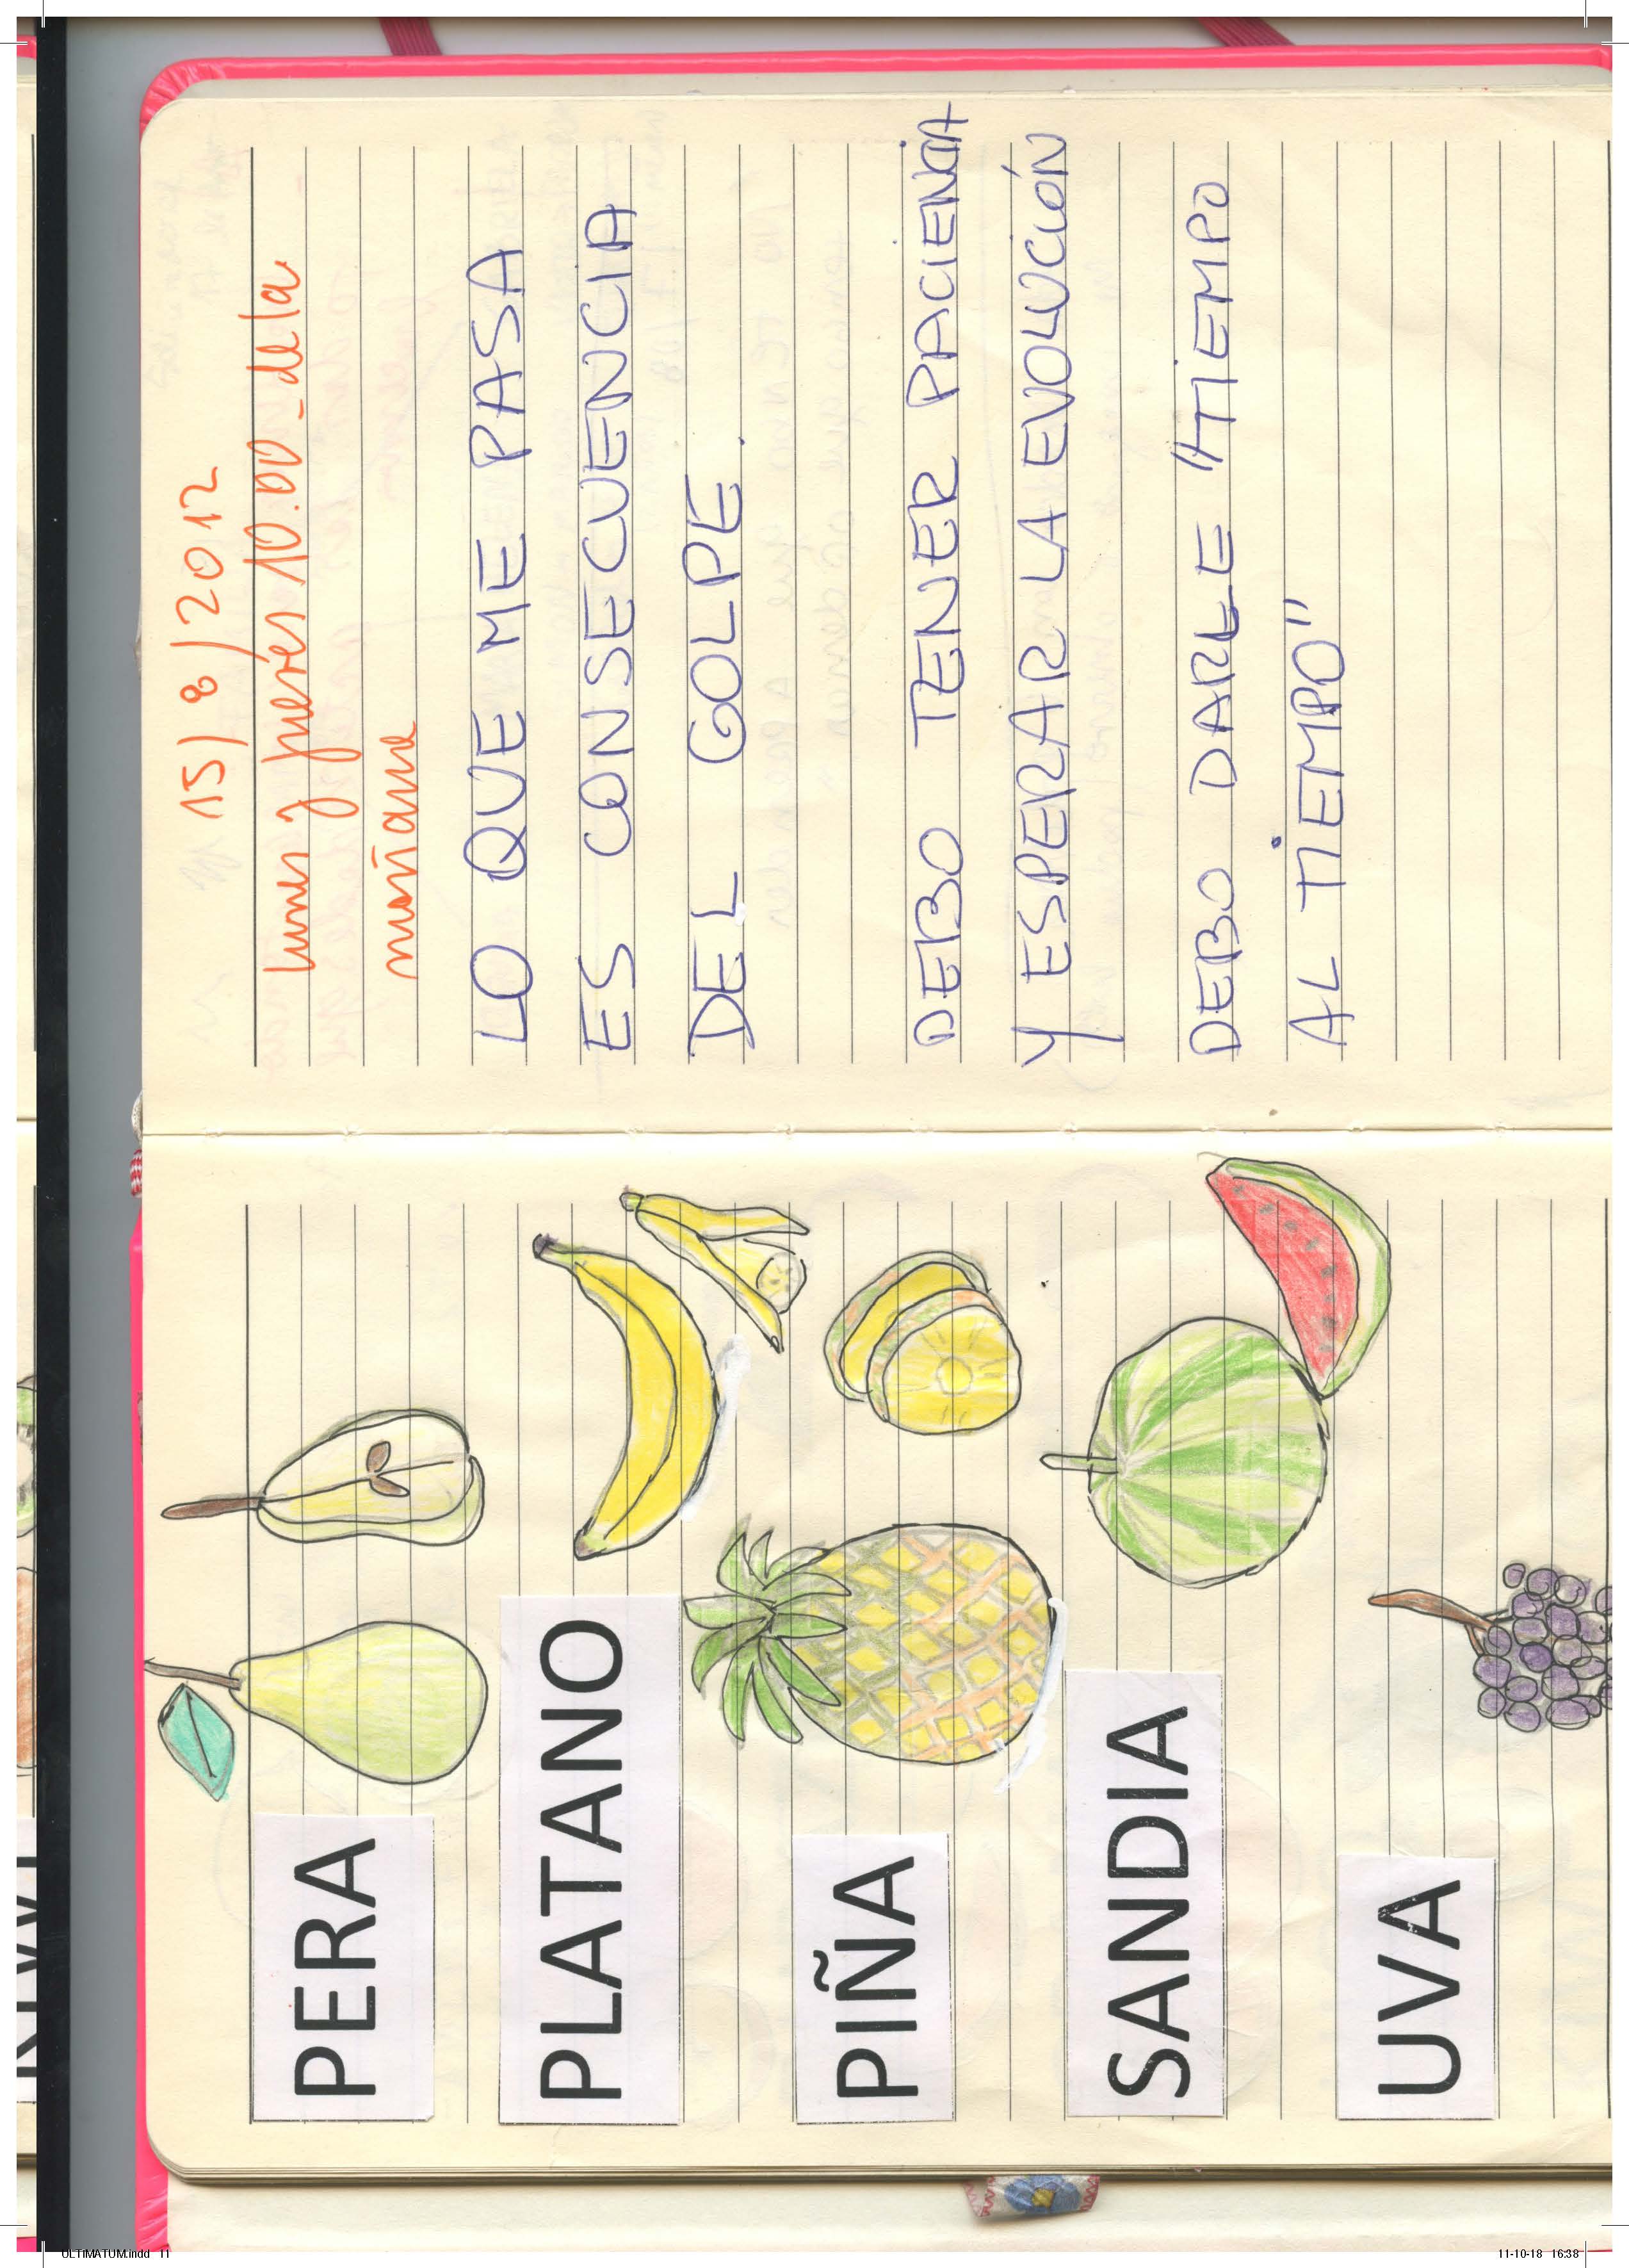 PERA
PLATANO
PIÑA
SANDIA
UVA
15/8/2012
lunes y jueves 10.00 de la
mañana
LO QUE ME PASA
ES CONSECUENCIA
DEL GOLPE.
DEBO TENER PACIENCIA
Y ESPERAR LA EVOLUCIÓN
DEBO DARLE "TIEMPO
AL TIEMPO"
ULTIMATUM.indd 11
11-10-18 16:38